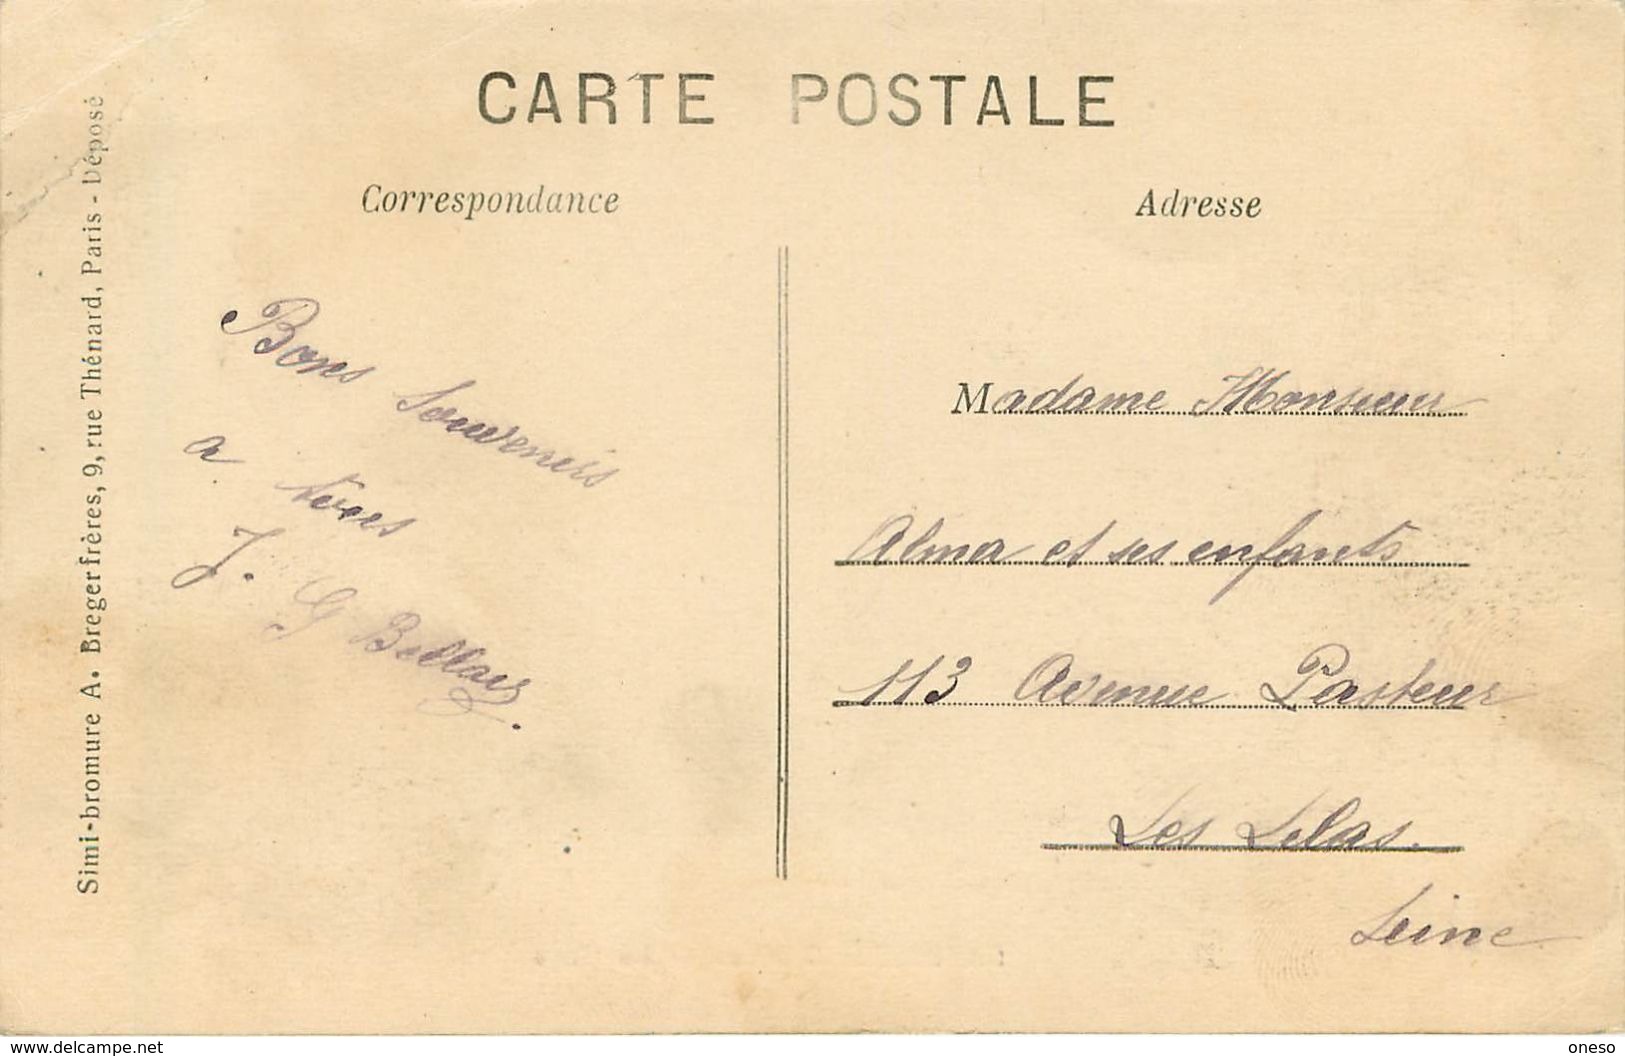 CARTE POSTALE
Correspondance
Adresse
Simi-bromure A. Breger frères, 9, rue Thénard, Paris - Déposé
Bons Souvenirs
a tous
J. G Bellais
Madame Monsieur
Alma et ses enfants
113 Avenue Pasteur
Les Lelas.
Seine
www.delcampe.net
oneso